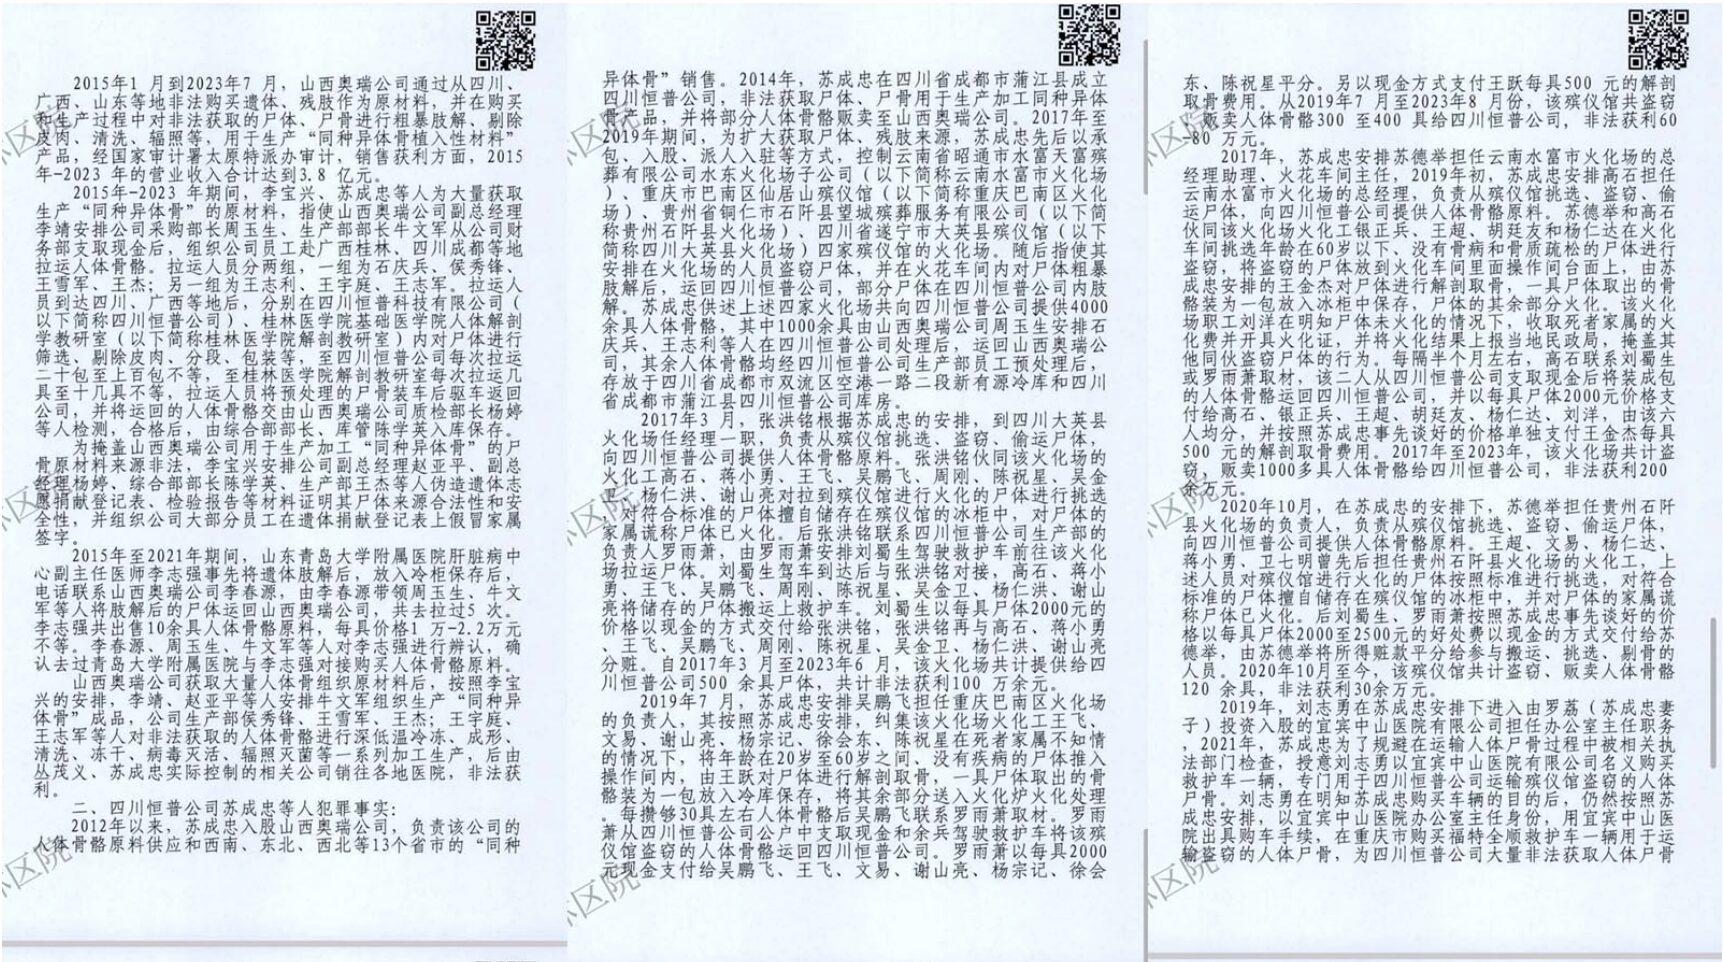 2015年1 月到2023年7 月，山西奥瑞公司通过从四川、
广西、山东等地非法购买遗体、残肢作为原材料，并在购买
和生产过程中对非法获取的尸体、尸骨进行粗暴肢解、剔除
皮肉、清洗、辐照等，用于生产“同种异体骨植入性材料”
产品，经国家审计署太原特派办审计，销售获利方面，2015
年-2023 年的营业收入合计达到3.8 亿元。
2015年-2023 年期间，李宝兴、苏成忠等人为大量获取
生产“同种异体骨”的原材料，指使山西奥瑞公司副总经理
李靖安排公司采购部长周玉生、生产部部长牛文军从公司财
务部支取现金后，组织公司员工赴广西桂林、四川成都等地
拉运人体骨骼。拉运人员分两组，一组为石庆兵、侯秀锋、
王雪军、王杰；另一组为王志利、王宇庭、王志军。拉运人
员到达四川、广西等地后，分别在四川恒普科技有限公司（
以下简称四川恒普公司）、桂林医学院基础医学院人体解剖
学教研室（以下简称桂林医学院解剖教研室）内对尸体进行
筛选、剔除皮肉、分段、包装等，至四川恒普公司每次拉运
二十包至上百包不等，至桂林医学院解剖教研室每次拉运几
具至十几具不等，拉运人员将预处理的尸骨装车后驱车返回
公司，并将运回的人体骨骼交由山西奥瑞公司质检部长杨婷
等人检测，合格后，由综合部部长、库管陈学英入库保存。
为掩盖山西奥瑞公司用于生产加工“同种异体骨”的尸
骨原材料来源非法，李宝兴安排公司副总经理赵亚平、副总
经理杨婷、综合部部长陈学英、生产部王杰等人伪造遗体志
愿捐献登记表、检验报告等材料证明其尸体来源合法性和安
全性，并组织公司大部分员工在遗体捐献登记表上假冒家属
签字。
2015年至2021年期间，山东青岛大学附属医院肝脏病中
心副主任医师李志强事先将遗体肢解后，放入冷柜保存后，
电话联系山西奥瑞公司李春源，由李春源带领周玉生、牛文
军等人将肢解后的尸体运回山西奥瑞公司，共去拉过5 次。
李志强共出售10余具人体骨骼原料，每具价格1 万-2.2万元
不等。李春源、周玉生、牛文军等人对李志强进行辨认，确
认去过青岛大学附属医院与李志强对接购买人体骨骼原料。
山西奥瑞公司获取大量人体骨组织原材料后，按照李宝
兴的安排，李靖、赵亚平等人安排牛文军组织生产“同种异
体骨”成品，公司生产部侯秀锋、王雪军、王杰；王宇庭、
王志军等人对非法获取的人体骨骼进行深低温冷冻、成形、
清洗、冻干、病毒灭活、辐照灭菌等一系列加工生产，后由
丛茂义、苏成忠实际控制的相关公司销往各地医院，非法获
利。
二、四川恒普公司苏成忠等人犯罪事实：
2012年以来，苏成忠入股山西奥瑞公司，负责该公司的
人体骨骼原料供应和西南、东北、西北等13个省市的“同种
异体骨”销售。2014年，苏成忠在四川省成都市蒲江县成立
四川恒普公司，非法获取尸体、尸骨用于生产加工同种异体
骨产品，并将部分人体骨骼贩卖至山西奥瑞公司。2017年至
2019年期间，为扩大获取尸体、残肢来源，苏成忠先后以承
包、入股、派人入驻等方式，控制云南省昭通市水富天富殡
葬有限公司水东火化场子公司（以下简称云南水富市火化场
）、重庆市巴南区仙居山殡仪馆（以下简称重庆巴南区火化
场）、贵州省铜仁市石阡县望城殡葬服务有限公司（以下简
称贵州石阡县火化场）、四川省遂宁市大英县殡仪馆（以下
简称四川大英县火化场）四家殡仪馆的火化场。随后指使其
安排在火化场的人员盗窃尸体，并在火花车间内对尸体粗暴
肢解后，运回四川恒普公司，部分尸体在四川恒普公司内肢
解。苏成忠供述上述四家火化场共向四川恒普公司提供4000
余具人体骨骼，其中1000余具由山西奥瑞公司周玉生安排石
庆兵、王志利等人在四川恒普公司处理后，运回山西奥瑞公
司，其余人体骨骼均经四川恒普公司生产部员工预处理后，
存放于四川省成都市双流区空港一路二段新有源冷库和四川
省成都市蒲江县四川恒普公司库房。
2017年3 月，张洪铭根据苏成忠的安排，到四川大英县
火化场任经理一职，负责从殡仪馆挑选、盗窃、偷运尸体，
向四川恒普公司提供人体骨骼原料。张洪铭伙同该火化场的
火化工高石、蒋小勇、王飞、吴鹏飞、周刚、陈祝星、吴金
卫、杨仁洪、谢山亮对拉到殡仪馆进行火化的尸体进行挑选
，对符合标准的尸体擅自储存在殡仪馆的冰柜中，对尸体的
家属谎称尸体已火化。后张洪铭联系四川恒普公司生产部的
负责人罗雨萧，由罗雨萧安排刘蜀生驾驶救护车前往该火化
场拉运尸体。刘蜀生驾车到达后与张洪铭对接，高石、蒋小
勇、王飞、吴鹏飞、周刚、陈祝星、吴金卫、杨仁洪、谢山
亮将储存的尸体搬运上救护车。刘蜀生以每具尸体2000元的
价格以现金的方式交付给张洪铭，张洪铭再与高石、蒋小勇
、王飞、吴鹏飞、周刚、陈祝星、吴金卫、杨仁洪、谢山亮
分赃。自2017年3 月至2023年6 月，该火化场共计提供给四
川恒普公司500 余具尸体，共计非法获利100 万余元。
2019年7 月，苏成忠安排吴鹏飞担任重庆巴南区火化场
的负责人，其按照苏成忠安排，纠集该火化场火化工王飞、
文易、谢山亮、杨宗记、徐会东、陈祝星在死者家属不知情
的情况下，将年龄在20岁至60岁之间、没有疾病的尸体推入
操作间内，由王跃对尸体进行解剖取骨，一具尸体取出的骨
骼装为一包放入冷库保存，将其余部分送入火化炉火化处理
。每攒够30具左右人体骨骼后吴鹏飞联系罗雨萧取材。罗雨
萧从四川恒普公司公户中支取现金和余兵驾驶救护车将该殡
仪馆盗窃的人体骨骼运回四川恒普公司。罗雨萧以每具2000
元现金支付给吴鹏飞、王飞、文易、谢山亮、杨宗记、徐会
东、陈祝星平分。另以现金方式支付王跃每具500 元的解剖
取骨费用。从2019年7 月至2023年8 月份，该殡仪馆共盗窃
、贩卖人体骨骼300 至400 具给四川恒普公司，非法获利60
-80 万元。
2017年，苏成忠安排苏德举担任云南水富市火化场的总
经理助理、火花车间主任，2019年初，苏成忠安排高石担任
云南水富市火化场的总经理，负责从殡仪馆挑选、盗窃、偷
运尸体，向四川恒普公司提供人体骨骼原料。苏德举和高石
伙同该火化场火化工银正兵、王超、胡廷友和杨仁达在火化
车间挑选年龄在60岁以下、没有骨病和骨质疏松的尸体进行
盗窃，将盗窃的尸体放到火化车间里面操作间台面上，由苏
成忠安排的王金杰对尸体进行解剖取骨，一具尸体取出的骨
骼装为一包放入冰柜中保存，尸体的其余部分火化。该火化
场职工刘洋在明知尸体未火化的情况下，收取死者家属的火
化费并开具火化证，并将火化结果上报当地民政局，掩盖其
他同伙盗窃尸体的行为。每隔半个月左右，高石联系刘蜀生
或罗雨萧取材，该二人从四川恒普公司支取现金后将装成包
的人体骨骼运回四川恒普公司，并以每具尸体2000元价格支
付给高石、银正兵、王超、胡廷友、杨仁达、刘洋，由该六
人均分，并按照苏成忠事先谈好的价格单独支付王金杰每具
500 元的解剖取骨费用。2017年至2023年，该火化场共计盗
窃、贩卖1000多具人体骨骼给四川恒普公司，非法获利200
余万元。
2020年10月，在苏成忠的安排下，苏德举担任贵州石阡
县火化场的负责人，负责从殡仪馆挑选、盗窃、偷运尸体，
向四川恒普公司提供人体骨骼原料。王超、文易、杨仁达、
蒋小勇、卫七明曾先后担任贵州石阡县火化场的火化工，上
述人员对殡仪馆进行火化的尸体按照标准进行挑选，对符合
标准的尸体擅自储存在殡仪馆的冰柜中，并对尸体的家属谎
称尸体已火化。后刘蜀生、罗雨萧按照苏成忠事先谈好的价
格以每具尸体2000至2500元的好处费以现金的方式交付给苏
德举，由苏德举将所得赃款平分给参与搬运、挑选、剔骨的
人员。2020年10月至今，该殡仪馆共计盗窃、贩卖人体骨骼
120 余具，非法获利30余万元。
2019年，刘志勇在苏成忠安排下进入由罗荔（苏成忠妻
子）投资入股的宜宾中山医院有限公司担任办公室主任职务
，2021年，苏成忠为了规避在运输人体尸骨过程中被相关执
法部门检查，授意刘志勇以宜宾中山医院有限公司名义购买
救护车一辆，专门用于四川恒普公司运输殡仪馆盗窃的人体
尸骨。刘志勇在明知苏成忠购买车辆的目的后，仍然按照苏
成忠安排，以宜宾中山医院办公室主任身份，用宜宾中山医
院出具购车手续，在重庆市购买福特全顺救护车一辆用于运
输盗窃的人体尸骨，为四川恒普公司大量非法获取人体尸骨